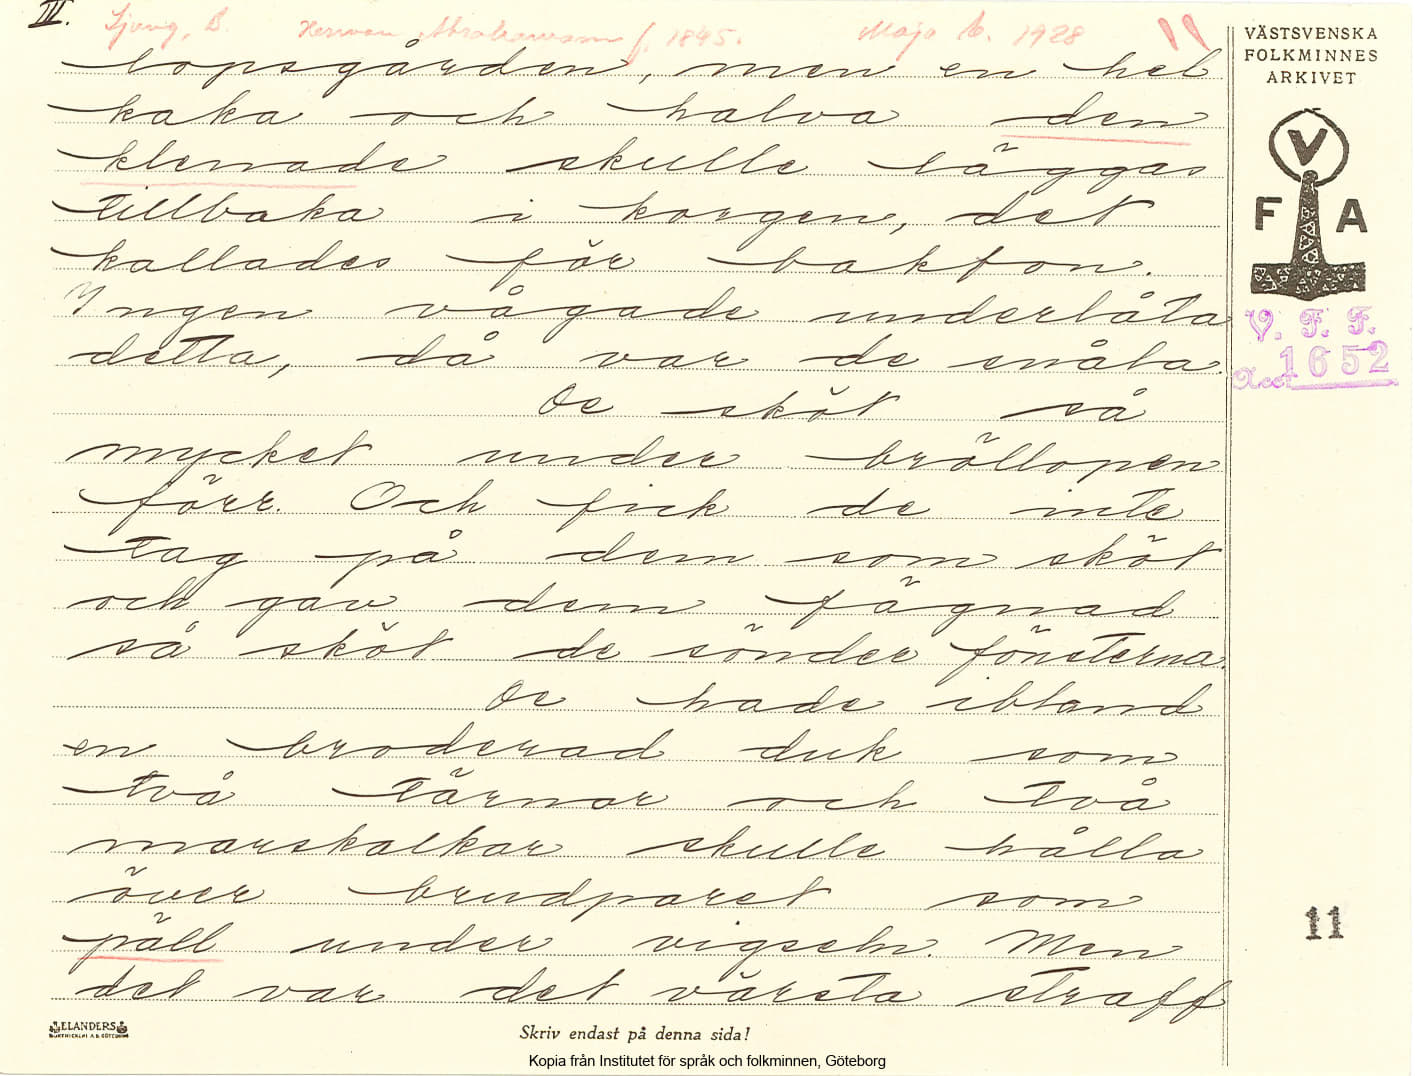 III. Ljung, B. Herman Abrahamsson f. 1845. Maja E. 1928 11
lopsgården, men en hel
kaka och halva den
klenade skulle läggas
tillbaka i korgen, det
kallades för bakfon.
Ingen vågade underlåta
detta, då var de snåla.
De sköt så
mycket under bröllopen
förr. Och fick de inte
tag på dem som sköt
och gav dem fägnad
så sköt de sönder fönsterna.
De hade ibland
en broderad duk som
två tärnor och två
marskalkar skulle hålla
över brudparet som
päll under vigseln. Men
det var det värsta straff
VÄSTSVENSKA
FOLKMINNES
ARKIVET
V
F A
V. F. F.
Acc. 1652
11
ELANDERS
Skriv endast på denna sida!
Kopia från Institutet för språk och folkminnen, Göteborg